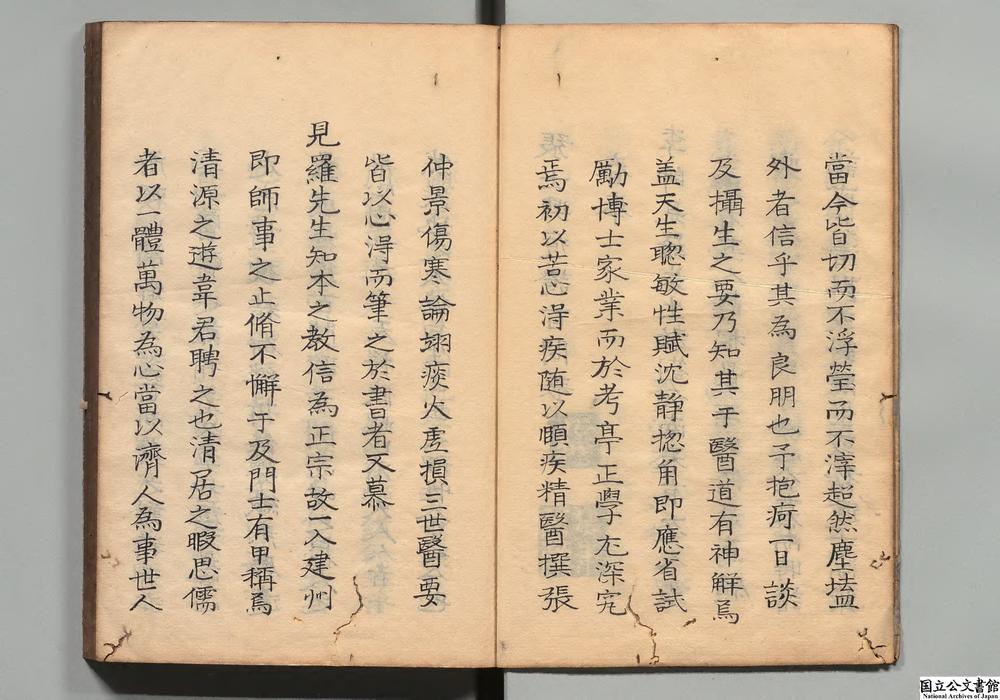 當今皆切而不浮瑩而不滓超然塵壒
外者信乎其為良朋也予抱痾一日談
及攝生之要乃知其于醫道有神解焉
盖天生聡敏性賦沈静捴角即應省試
勵博士家業而於考亭正學尤深究
焉初以苦心淂疾随以頤疾精醫撰張
仲景傷寒論翊痰火虛損三世醫要
皆以心淂而筆之於書者又慕
見羅先生知本之教信為正宗故一入建州
即師事之止脩不懈于及門士有甲稱焉
清源之遊韋君聘之也清居之暇思儒
者以一體萬物為心當以濟人為事世人
国立公文書館
National Archives of Japan